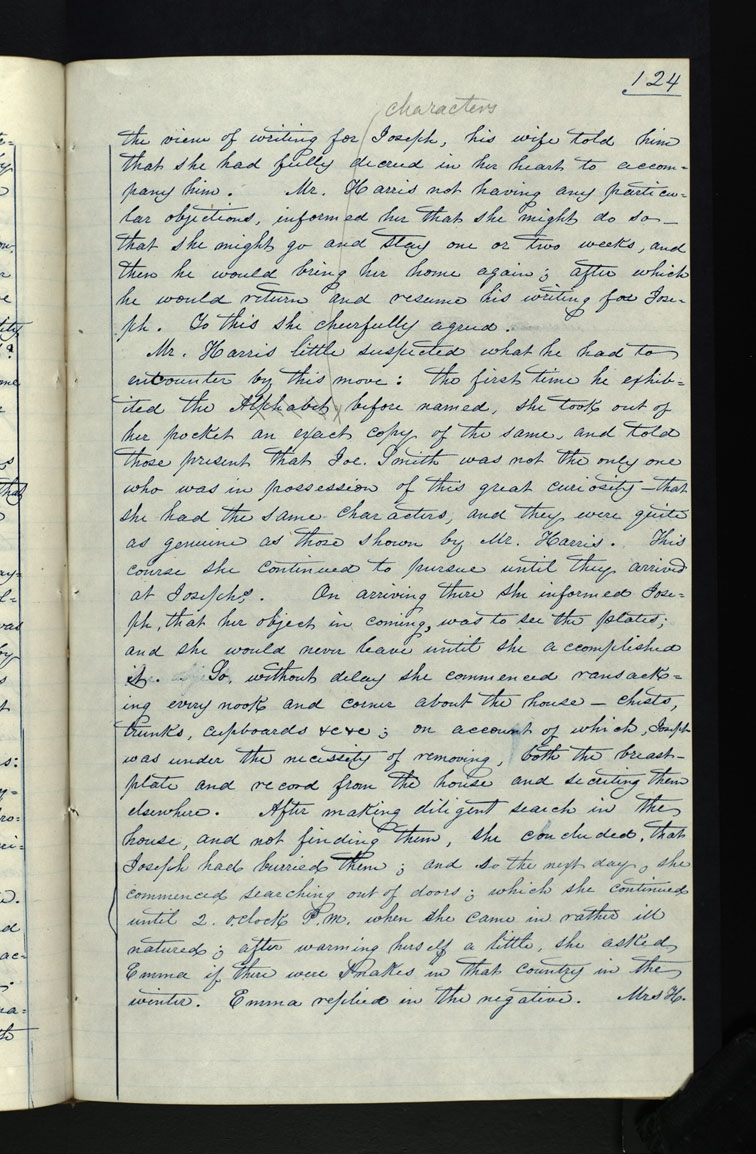 124
characters
the view of writing for Joseph, his wife told him
that she had fully decreed in her heart to accom=
pany him. Mr. Harris not having any particu=
lar objections, informed her that she might do so—
that she might go and stay one or two weeks, and
then he would bring her home again; after which
he would return and resume his writing for Jose=
ph. To this she cheerfully agreed.
Mr. Harris little suspected what he had to
encounter by this move: the first time he exhib=
ited the Alphabet before named, she took out of
her pocket an exact copy of the same, and told
those present that Joe. Smith was not the only one
who was in possession of this great curiosity—that
she had the same characters, and they were quite
as genuine as those shown by Mr. Harris. This
course she continued to pursue until they arrived
at Joseph's. On arriving there she informed Jose=
ph, that her object in coming, was to see the plates;
and she would never leave until she accomplished
it. So, without delay she commenced ransack=
ing every nook and corner about the house— chests,
trunks, cupboards &c&c; on account of which, Joseph
was under the necessity of removing, both the breast-
plate and record from the house and secreting them
elsewhere. After making diligent search in the
house, and not finding them, she concluded, that
Joseph had burried them; and so the next day, she
commenced searching out of doors; which she continued
until 2. o,clock P.m. when she came in rather ill
natured; after warming herself a little, she asked
Emma if there were snakes in that country in the
winter. Emma replied in the negative. Mrs H.